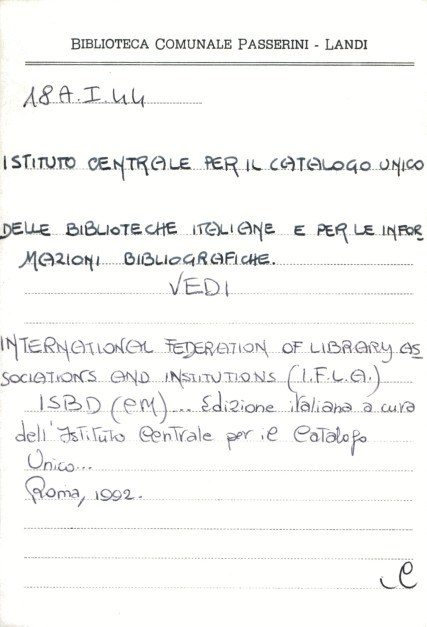 BIBLIOTECA COMUNALE PASSERINI - LANDI
18 A. I. 44
ISTITUTO CENTRALE PER IL CATALOGO UNICO
DELLE BIBLIOTECHE ITALIANE E PER LE INFOR
MAZIONI BIBLIOGRAFICHE.
VEDI
INTERNATIONAL FEDERATION OF LIBRARY AS
SOCIATIONS AND INSTITUTIONS (I.F.L.A.)
ISBD (CM)... Edizione italiana a cura
dell'Istituto Centrale per il Catalogo
Unico...
Roma, 1992.